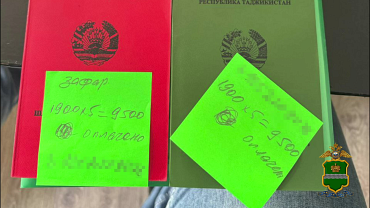 РЕСПУБЛИКА ТАДЖИКИСТАН
Зафар
1900x5=9500
оплачено
1900x5=9500
оплачено